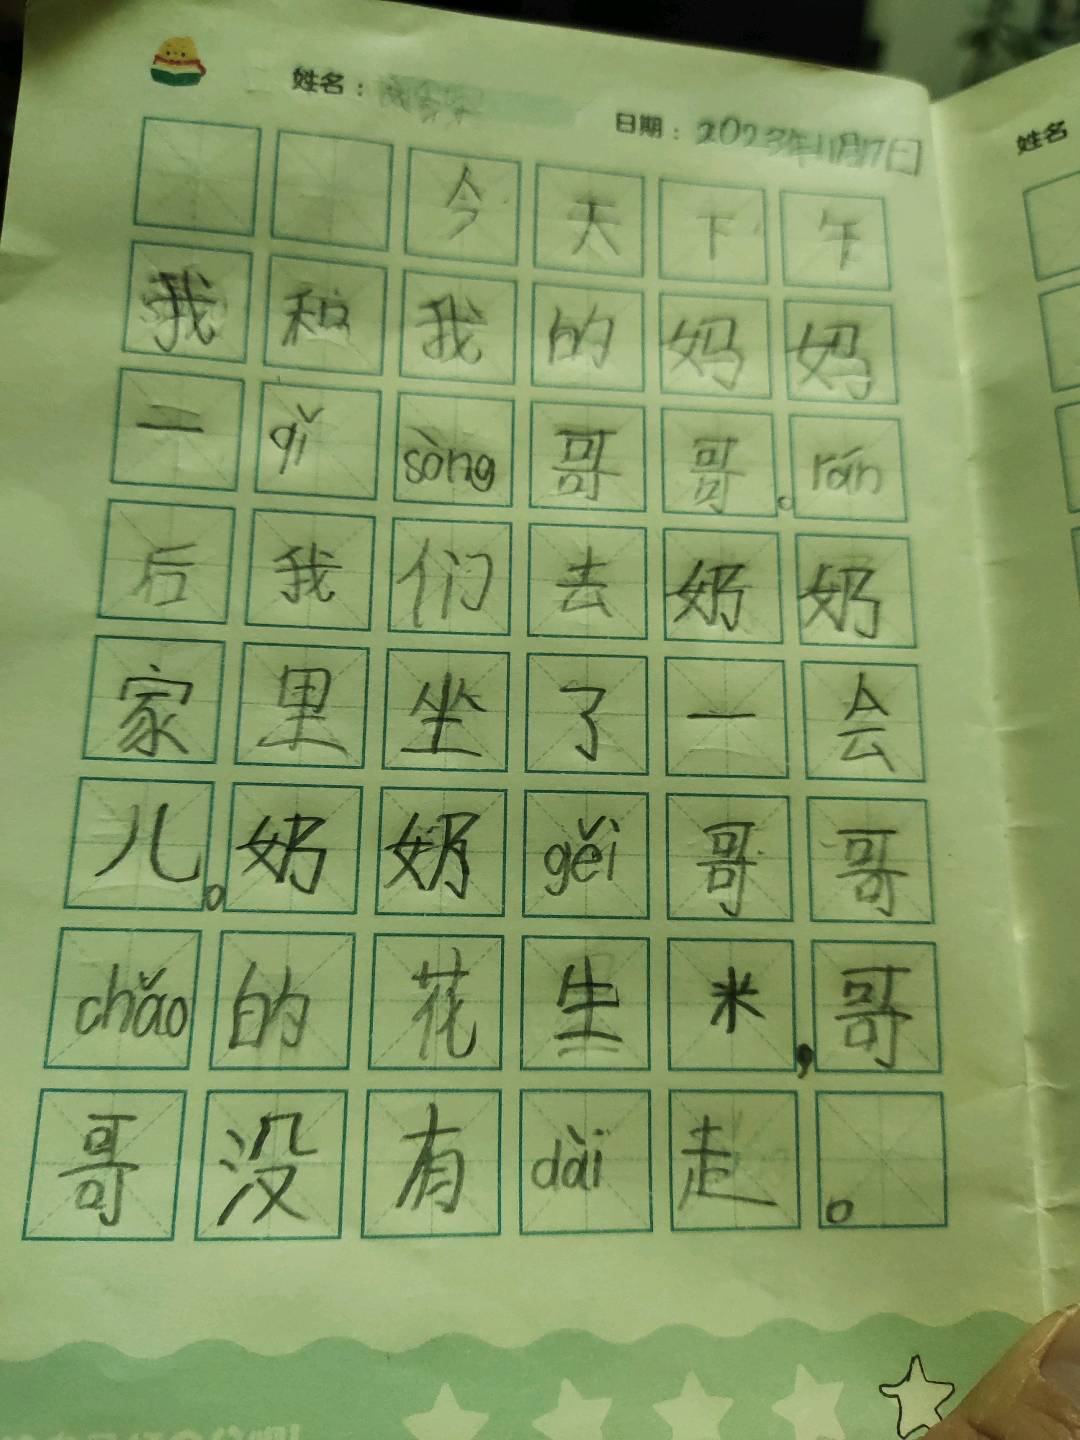 姓名：
日期：2023年11月17日
今天下午
我和我的妈妈
一qǐsòng哥哥。rán
后我们去奶奶
家里坐了一会
儿。奶奶gěi哥哥
chǎo的花生米，哥
哥没有dài走。
姓名